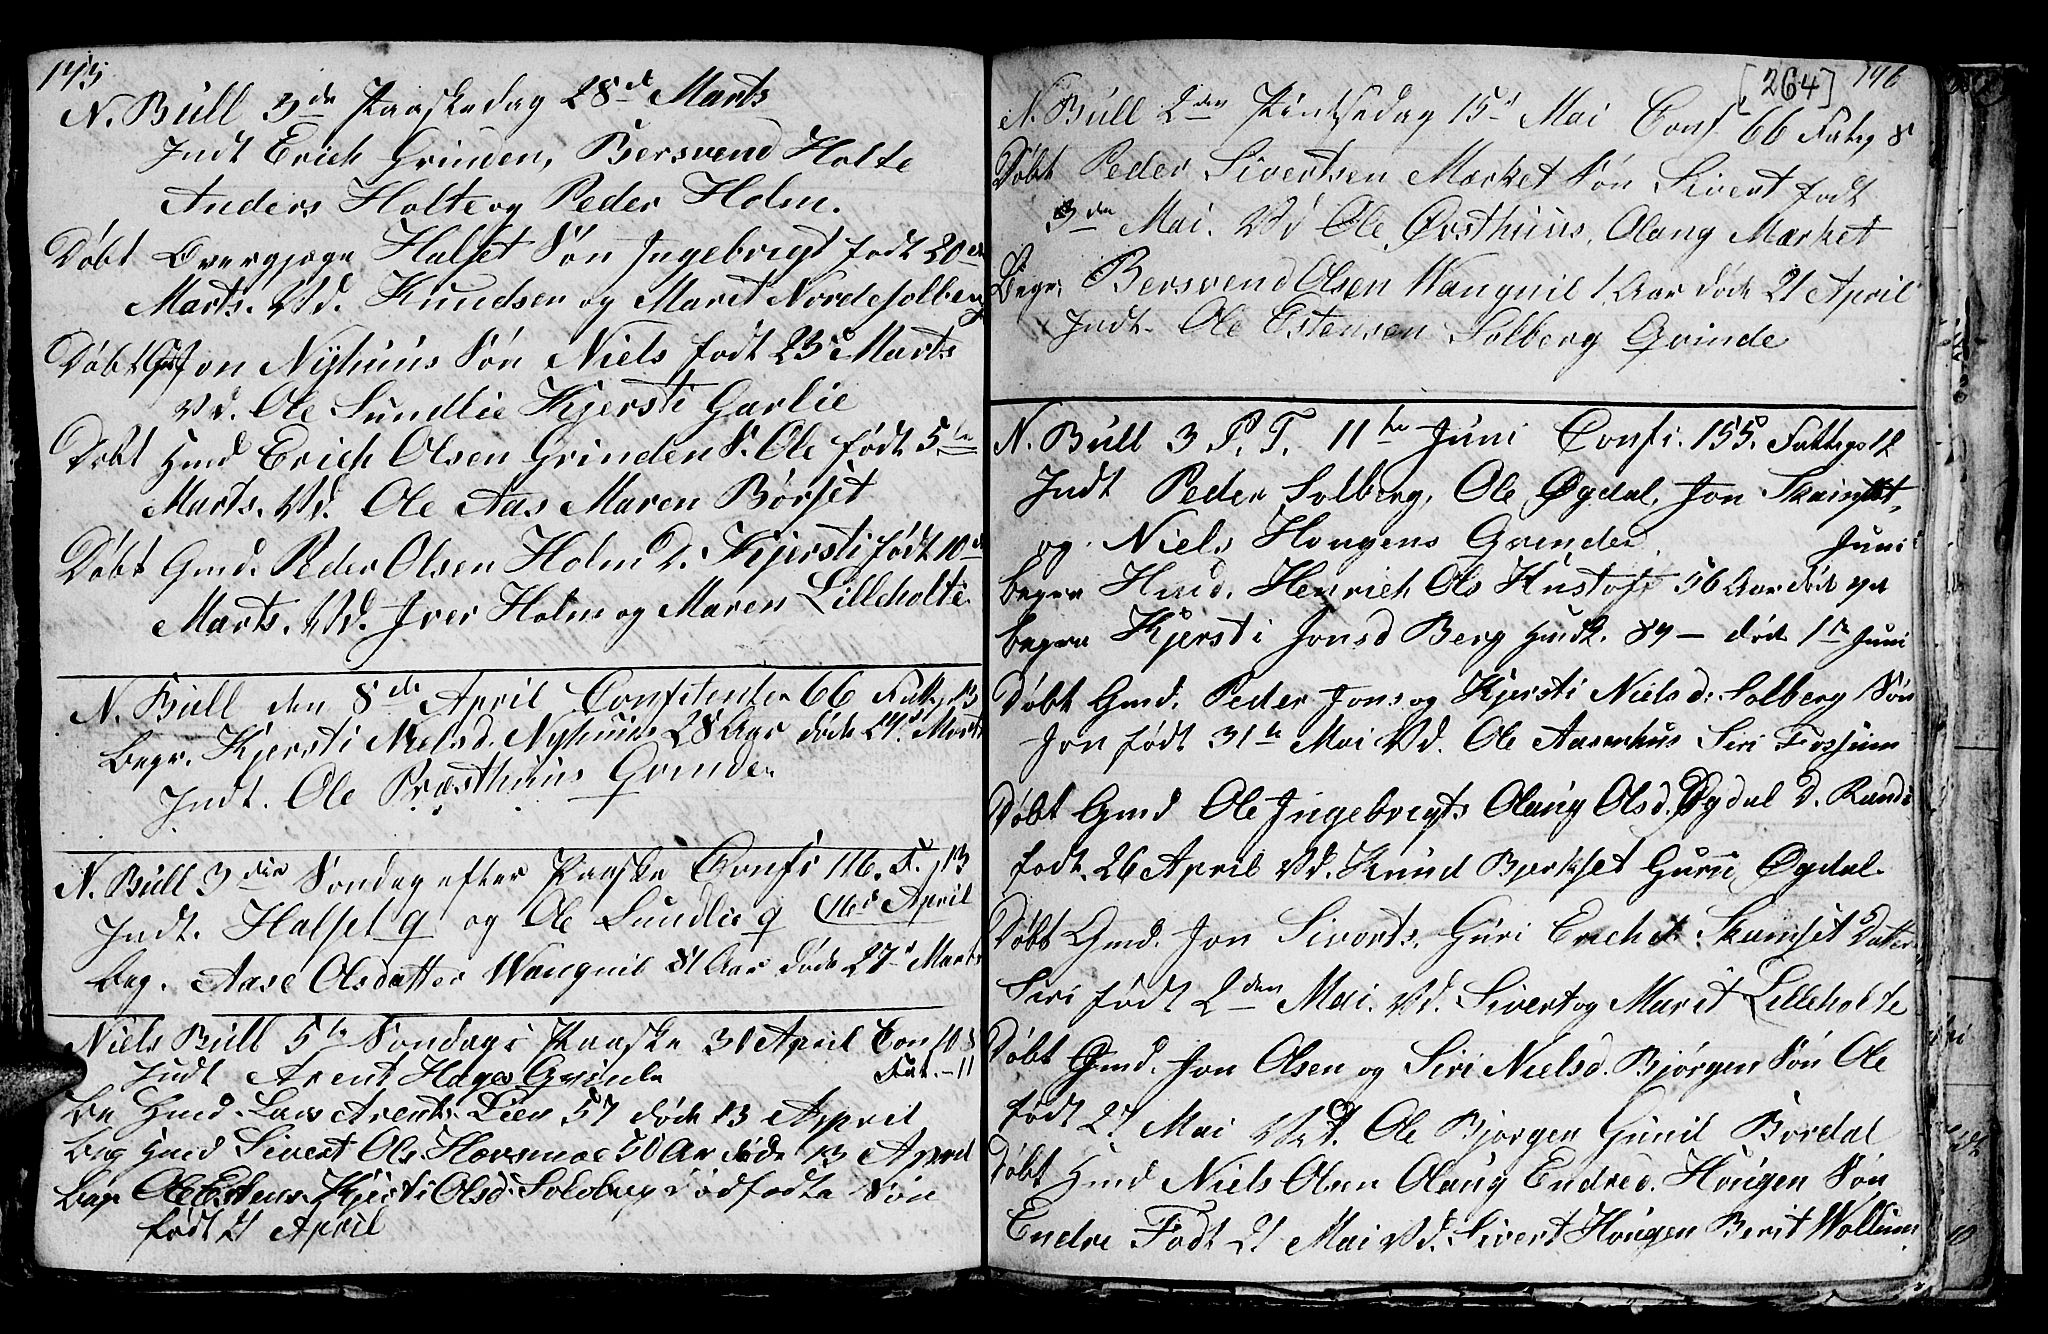 145
N. Bull 3de Paaskedag 28de Marts
Indt Erich Grinden, Bersvend Holte
Anders Holte og Peder Holm.
Døbt Overgjøge Halset Søn Ingebrigt født 20de
Marts. Vd. Knudsen og Maret Nordesolberg
Døbt Jon Nyhuus Søn Niels født 23de Marts
Vd. Ole Sundlie Kjersti Garlie
Døbt Hmd Erich Olsen Grinden S. Ole født 5te
Marts. Vd. Ole Aas Maren Børset
Døbt Gmd. Peder Olsen Holm D. Kjersti født 10de
Marts. Vd. Iver Holm og Maren Lilleholte
N. Bull den 8de April Confitenter 66 Fatg. 13
Begr. Kjersti Nielsd. Nyhuus 28 Aar døde 24d Marts
Indt. Ole Præsthuus Grinde
N. Bull 3die Søndag efter Paaske Confi 116. F. 13
Indt. Halset g og Ole Sundlie g (16d April
Beg. Aase Olsdatter Wangnil 81 Aar døde 27d Marts
Niels Bull 5te Søndag Paaske 30 April Con 108
Indt Arent Hagen Grinde Fat. - 11
Be Hmd. Lars Arents. Lien 57 døde 13 April
Beg Hmd Sivert Ols Horsmoe 50 Aar døde 13 April
Begr Ole Estens. Kjersti Olsd. Solberg dødfødte Søn
født 21 April
[264] 146
N. Bull 2den Pintsedag 15d Mai Conf 66 Fatig 8
Døbt Peder Sivertsen Market Søn Sivert født
3den Mai. Vd Ole Østhuus, Olaug Market
Begr. Bersvend Olsen Wangnil 1 Aar døde 21 April
Indt. Ole Estensen Solberg Grinde
N. Bull 3 P. T. 11te Juni Confi. 155. Fattige 12
Indt Peder Solberg, Ole Øgdal, Jon Skamset,
og Niels Hougens Grinder. Juni
Begra Hmd. Henrich Ols Hustoft 56 Aar død
Begra Kjersti Jonsd Berg Hmdk. 84 - døde 1te Juni
Døbt Gmd. Peder Jons og Kjersti Nielsd: Solberg Søn
Jon født 31te Mai Vd. Ole Aasenhus Siri Fossum
Døbt Gmd Ole Ingebrigts Olaug Olsd. Øgdal D. Randi
født 26 April Vd. Knud Bjerkset Guru Øgdal.
Døbt Gmd. Jon Siverts. Guri Erichd. Skamset Datter
Siri født 2den Mai. Vd. Sivert og Marit Lilleholte
Døbt Gmd. Jon Olsen og Siri Nielsd. Bjørgen Søn Ole
født 27 Mai Vd. Ole Bjørgen Gunil Bordal
Døbt Hmd Niels Olsen Olaug Endred. Hougen Søn
Endre Født 21 Mai Vd. Sivert Hougen Berit Wollum